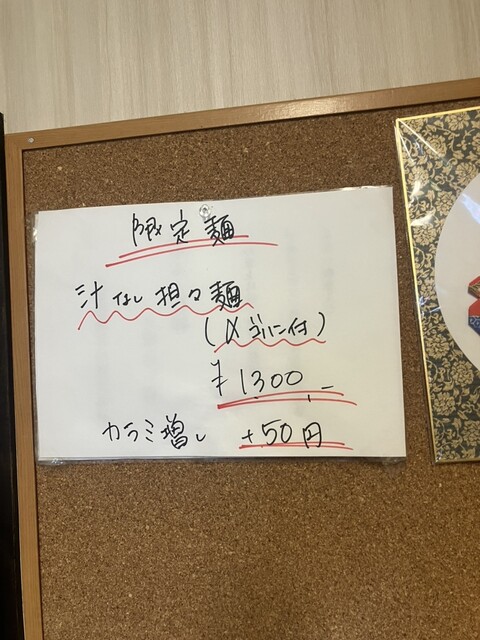 限定麺
汁なし担々麺
(〆ゴハン付)
¥1300.-
カラミ増し +50円